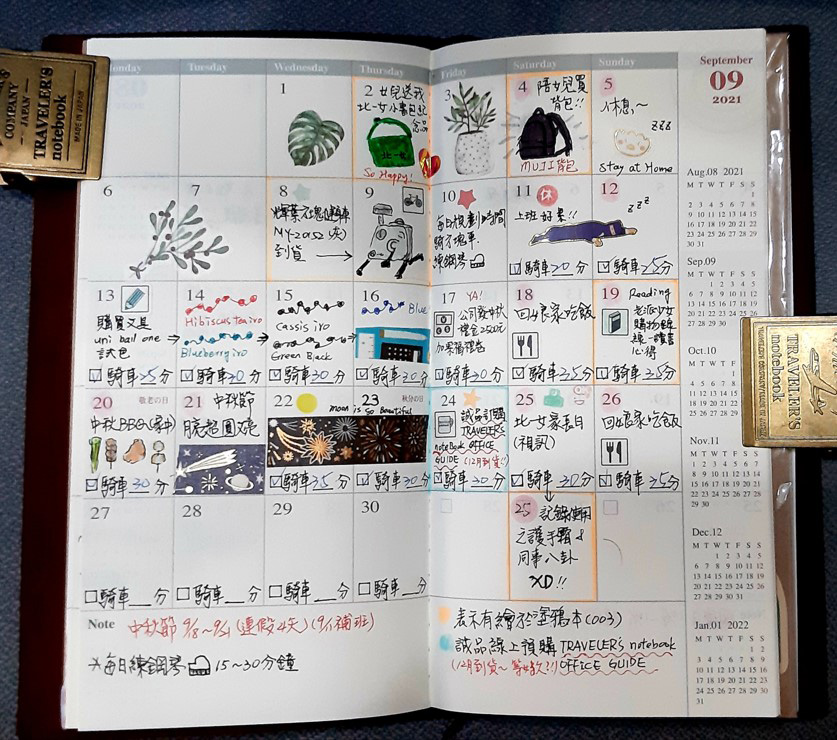 COMPANY
JAPAN
TRAVELER'S
notebook
MADE IN JAPAN
Tuesday
Wednesday
Thursday
Friday
Saturday
Sunday
September
09
2021
1
2 女兒送我
北一女小書包紀
念品
北一女
So Happy!
3
4 陪女兒買
背包!!
MUJI背包
5
休息~
zzz
Stay at Home
6
7
8
MY-20152 (灰)
到貨
9
10
每日規劃時間
練鋼琴
11 休
上班好累!!
騎車20分
12
zzz
騎車25分
13
購買文具
uni ball one
試包
騎車25分
14
Hibiscus tea iro
Blueberry iro
騎車30分
15
Cassis iro
Green Black
騎車30分
16
Blue
騎車30分
17 YA!
公司發中秋
禮金2500元
騎車30分
18
回娘家吃飯
騎車35分
19 Reading
騎車35分
20 敬老の日
中秋BBQ(家中)
騎車30分
21 中秋節
月亮超圓、亮
22
moon is so Beautiful
騎車35分
23 秋分の日
騎車30分
24
誠品訂購
TRAVELER'S
notebook OFFICE
GUIDE
(12月到貨!!)
騎車30分
25
北一女家長日
(視訊)
騎車30分
26
回娘家吃飯
騎車35分
27
騎車__分
28
騎車__分
29
騎車__分
30
騎車__分
25 記錄使用
之護手霜 &
同事八卦
XD!!
Note 中秋節 9/18~9/21 (連假4天) (9/11補班)
*每日練鋼琴 15~30分鐘
表示有繪於塗鴉本(003)
誠品線上預購 TRAVELER's notebook
OFFICE GUIDE
Aug.08 2021
M T W T F S S
1
2 3 4 5 6 7 8
9 10 11 12 13 14 15
16 17 18 19 20 21 22
23 24 25 26 27 28 29
30 31
Sep.09
M T W T F S S
1 2 3 4 5
6 7 8 9 10 11 12
13 14 15 16 17 18 19
20 21 22 23 24 25 26
27 28 29 30
Oct.10
M T W T F S S
1 2 3
4 5 6 7 8 9 10
Nov.11
M T W T F S S
1 2 3 4 5 6 7
8 9 10 11 12 13 14
15 16 17 18 19 20 21
22 23 24 25 26 27 28
29 30
Dec.12
M T W T F S S
1 2 3 4 5
6 7 8 9 10 11 12
13 14 15 16 17 18 19
20 21 22 23 24 25 26
27 28 29 30 31
Jan.01 2022
M T W T F S S
1 2
3 4 5 6 7 8 9
10 11 12 13 14 15 16
17 18 19 20 21 22 23
24 25 26 27 28 29 30
31
TRAVELER'S
notebook